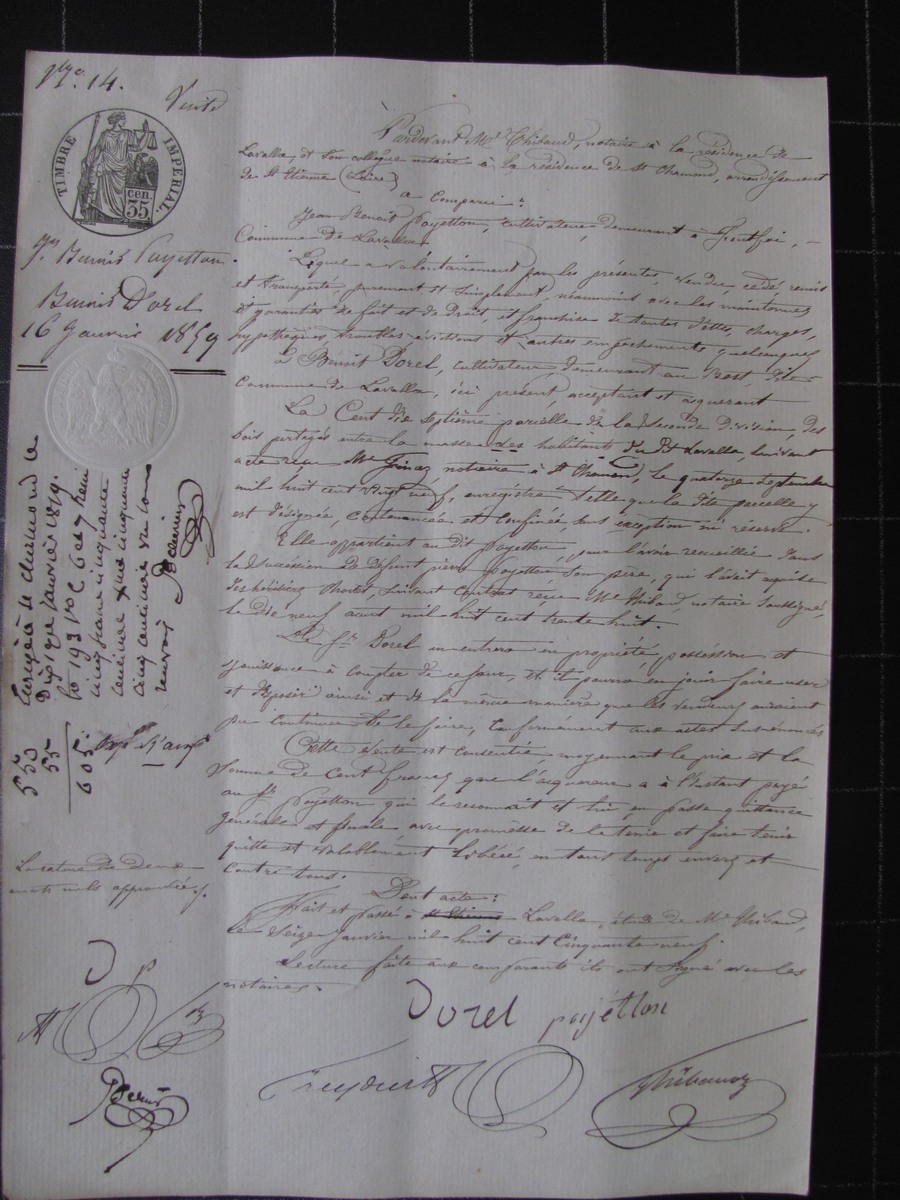 No. 14.
Vente
TIMBRE IMPERIAL.
35 cen.
Jn Benoit Payetton.
Benoit Dorel
16 Janvier 1859
Pardevant Me Thibaud, notaire à la résidence de
Lavalla, et son collègue notaire à la résidence de St Chamond, arrondissement
de St Etienne (Loire)
a Comparu:
Jean Benoit Payetton, cultivateur, demeurant à
Commune de Lavalla.
Lequel a volontairement par les présentes, vendu cédé remis
et transporté purement et simplement, néanmoins avec les maintenues
et garanties de fait et de Droit, et franchise de toutes dettes, charges,
hypothèques, troubles évictions et autres empêchements quelconques
à Benoit Dorel, cultivateur demeurant au Bost, dite
Commune de Lavalla, ici présent acceptant et acquérant
La Cent dix septième parcelle de la seconde Division, des
bois partagés entre la masse des habitants du dt Lavalla, suivant
acte reçu Me notaire à St Chamond, le quatorze septembre
mil huit cent vingt neuf, enregistré telle que la dite parcelle y
est désignée, contenancée et confinée sans exception ni réserve.
Elle appartient au dit Payetton, pour l'avoir recueillie dans
la succession de défunt Payetton son père, qui l'avait acquise
des héritiers suivant contrat reçu Me Thibaud, notaire soussigné,
le dix neuf aout mil huit cent trente huit.
Le St Dorel entrera en propriété, possession et
jouissance à compter de ce jour, et il pourra en jouir faire user
et disposer ainsi et de la même manière que les vendeurs auraient
pu continuer de le faire, conformément aux actes sus énoncés
Cette vente est consentie, moyennant le prix et la
somme de Cent francs que l'acquéreur a à l'instant payé
au St Payetton qui le reconnait et lui en passe quittance
générale et finale, avec promesse de le tenir et faire tenir
quitte et valablement libéré, en tout temps envers et
contre tous.
Dont acte:
Fait et Passé à St Etienne Lavalla, étude de Me Thibaud,
le Seize Janvier mil huit cent Cinquante neuf.
Lecture faite aux comparants ils ont signé avec les
notaires.
Dorel payetton
Thibaud
Enregistré à St chamond le
Dix sept janvier 1859.
fo 193 Vo C 6 et 7 Reçu
cinq francs cinquante
centimes Xme cinquante
cinq centimes
renvoi
5 50
55
6 05
La rature de deux
mots nuls approuvée
D P